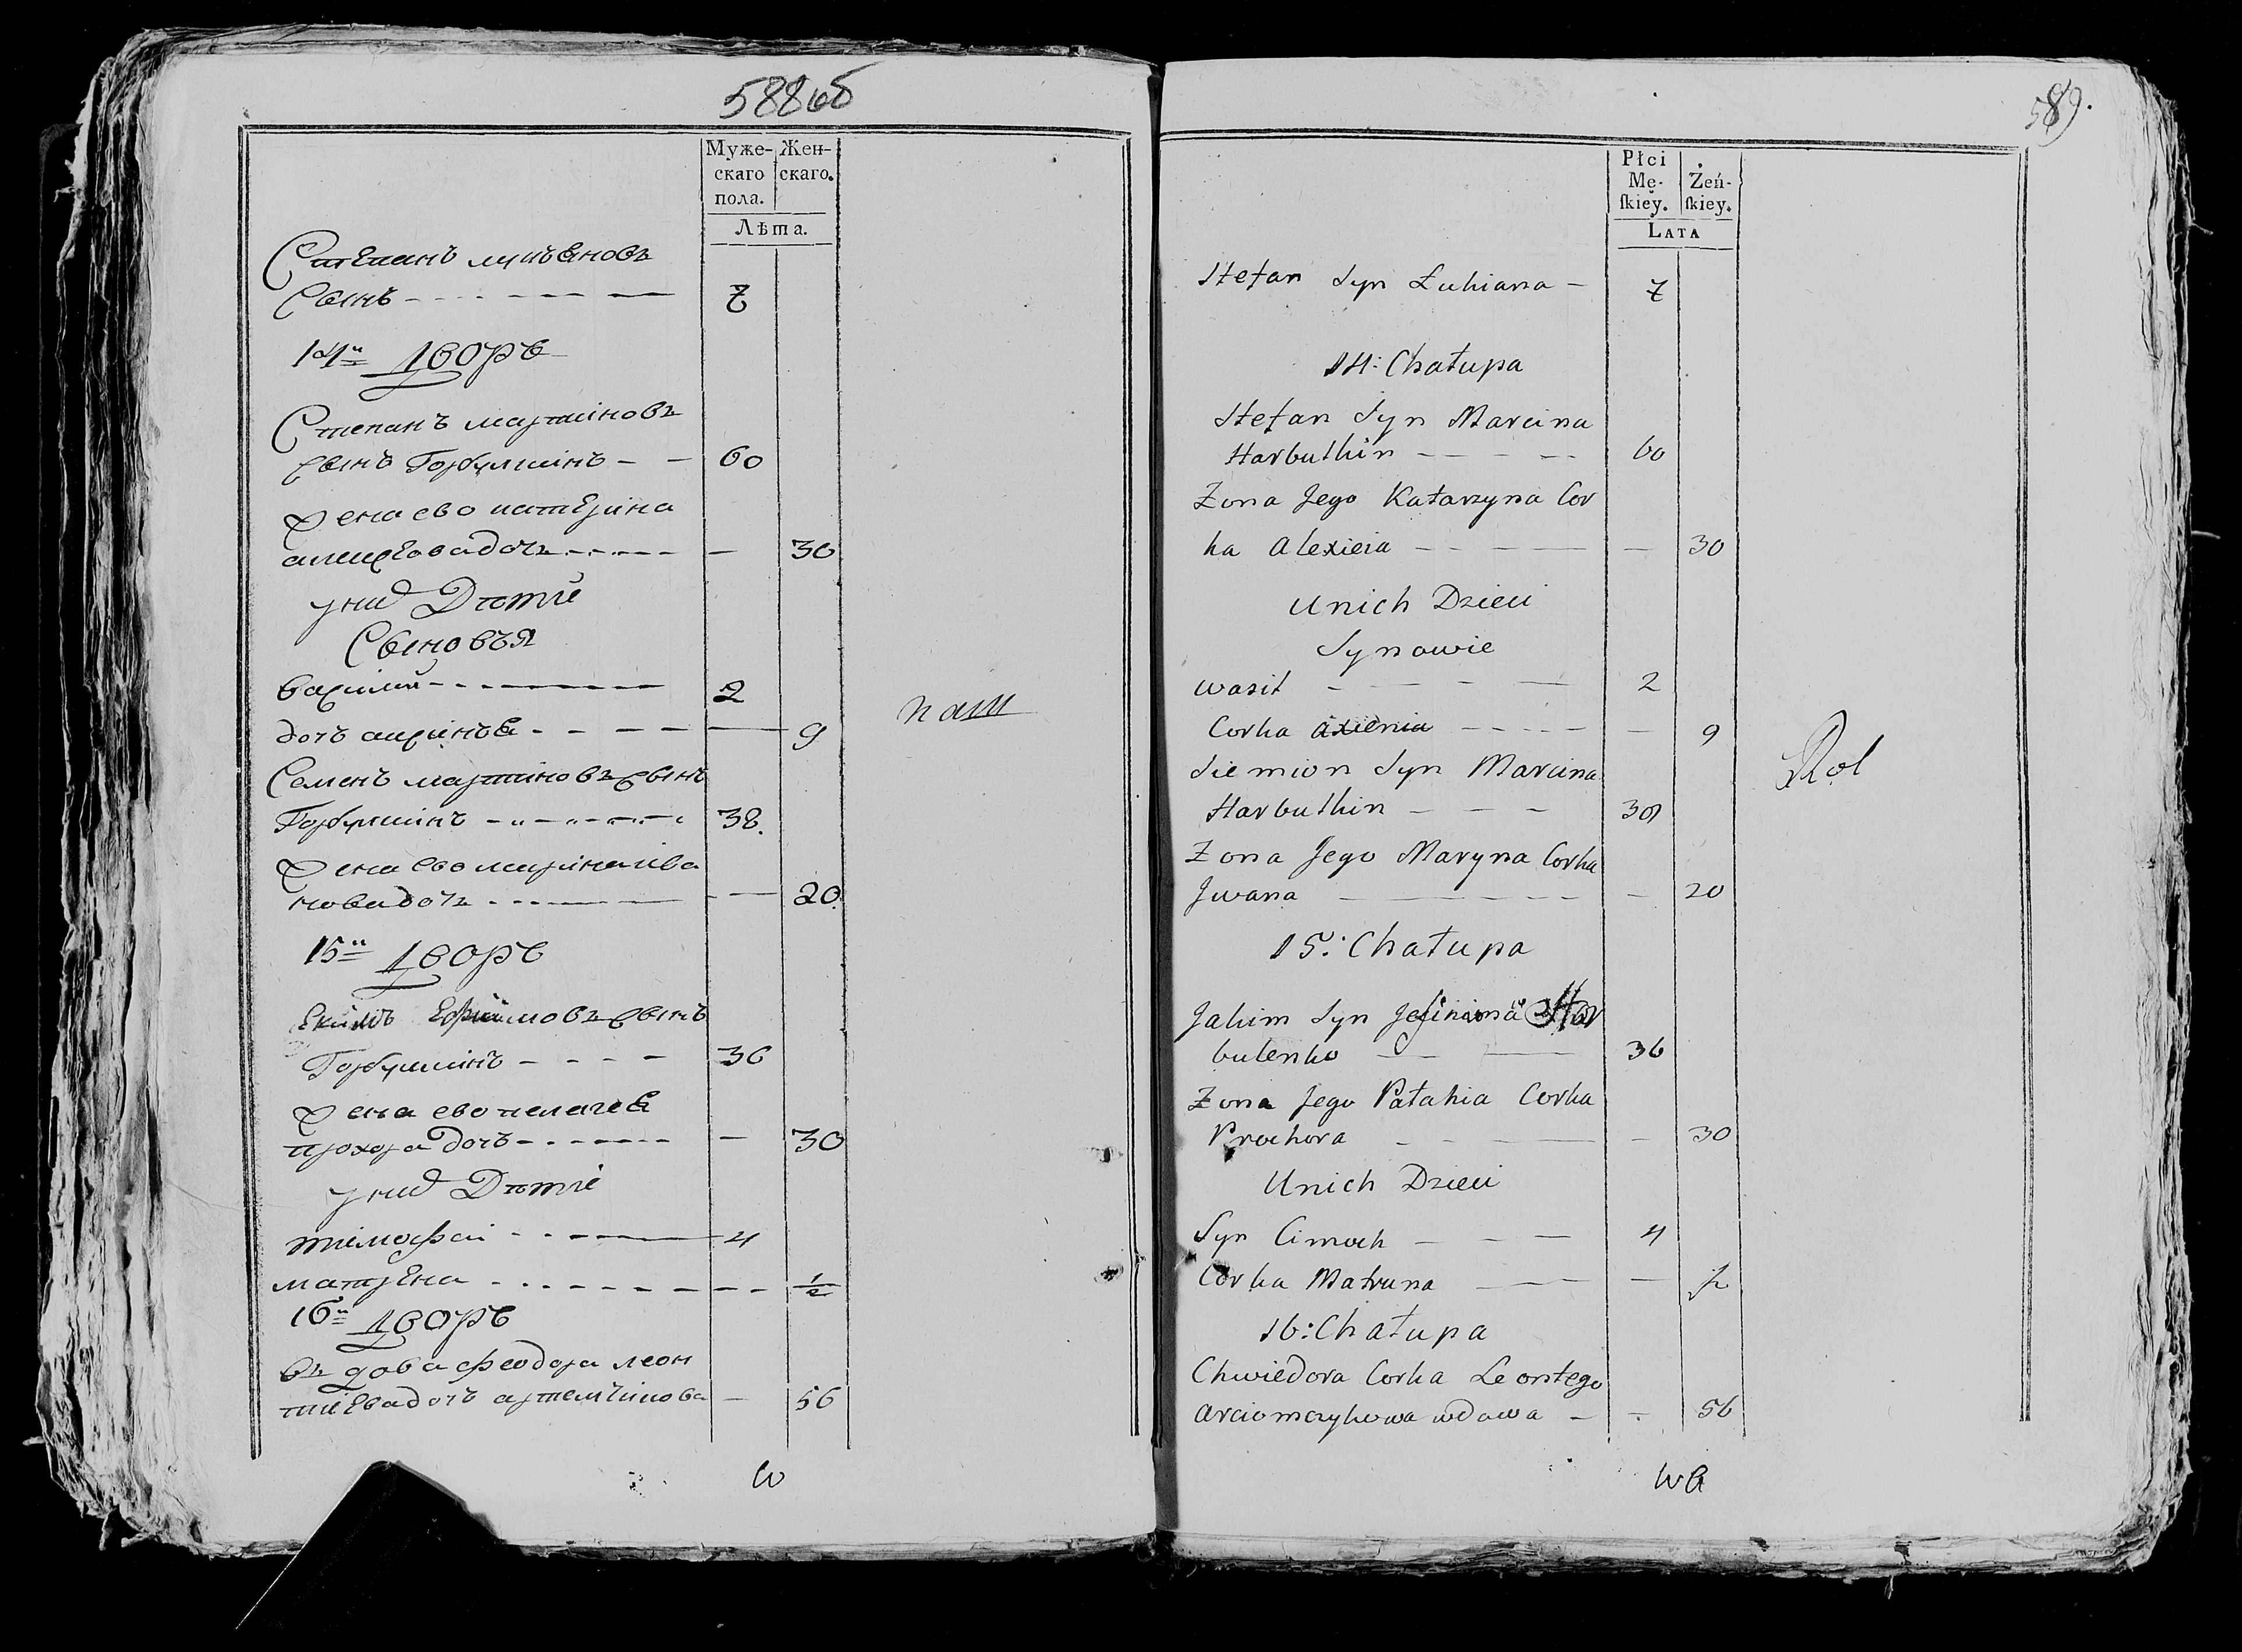 588 об
Муже-
скаго
пола.
Жен-
скаго.
Лѣта.
Степанъ лукъяновъ
сынъ 7
14й дворъ
Степанъ мартиновъ
сынъ Горбушкінъ 60
жена ево катеріна
алексѣева дочь 30
у них Дѣтіе
Сыновья
василий 2
дочь аксинья 9
Семенъ мартиновъ сынъ
Горбушкінъ 38.
жена ево марина ива
нова дочь 20
15й дворъ
Екимъ Ефимовъ сынъ
Горбушкінъ 36
жена ево пелагея
прохора дочь 30
у них Дѣтіе
тимофей 4
матрена 1/2
16й дворъ
въдова феодора леон
тиева дочь артемчикова 56
паш
w
589.
Płci
Mę-
ſkiey.
Żeń-
ſkiey.
LATA
Stefan Syn Łukiana 7
14: Chałupa
Stefan Syn Marcina
Harbutkin 60
Żona Jego Katarzyna Cor
ka Alexieia 30
U nich Dzieci
Synowie
Wasil 2
Corka Axienia 9
Siemion Syn Marcina
Harbutkin 38
Żona Jego Maryna Corka
Jwana 20
15: Chałupa
Jakim Syn Jefima Har
butenko 36
Żona Jego Pałahia Corka
Prochora 30
U nich Dzieci
Syn Cimoch 4
Corka Matruna 1/2
16: Chałupa
Chwiedora Corka Leontego
Arciomczykowa wdowa 56
Rol